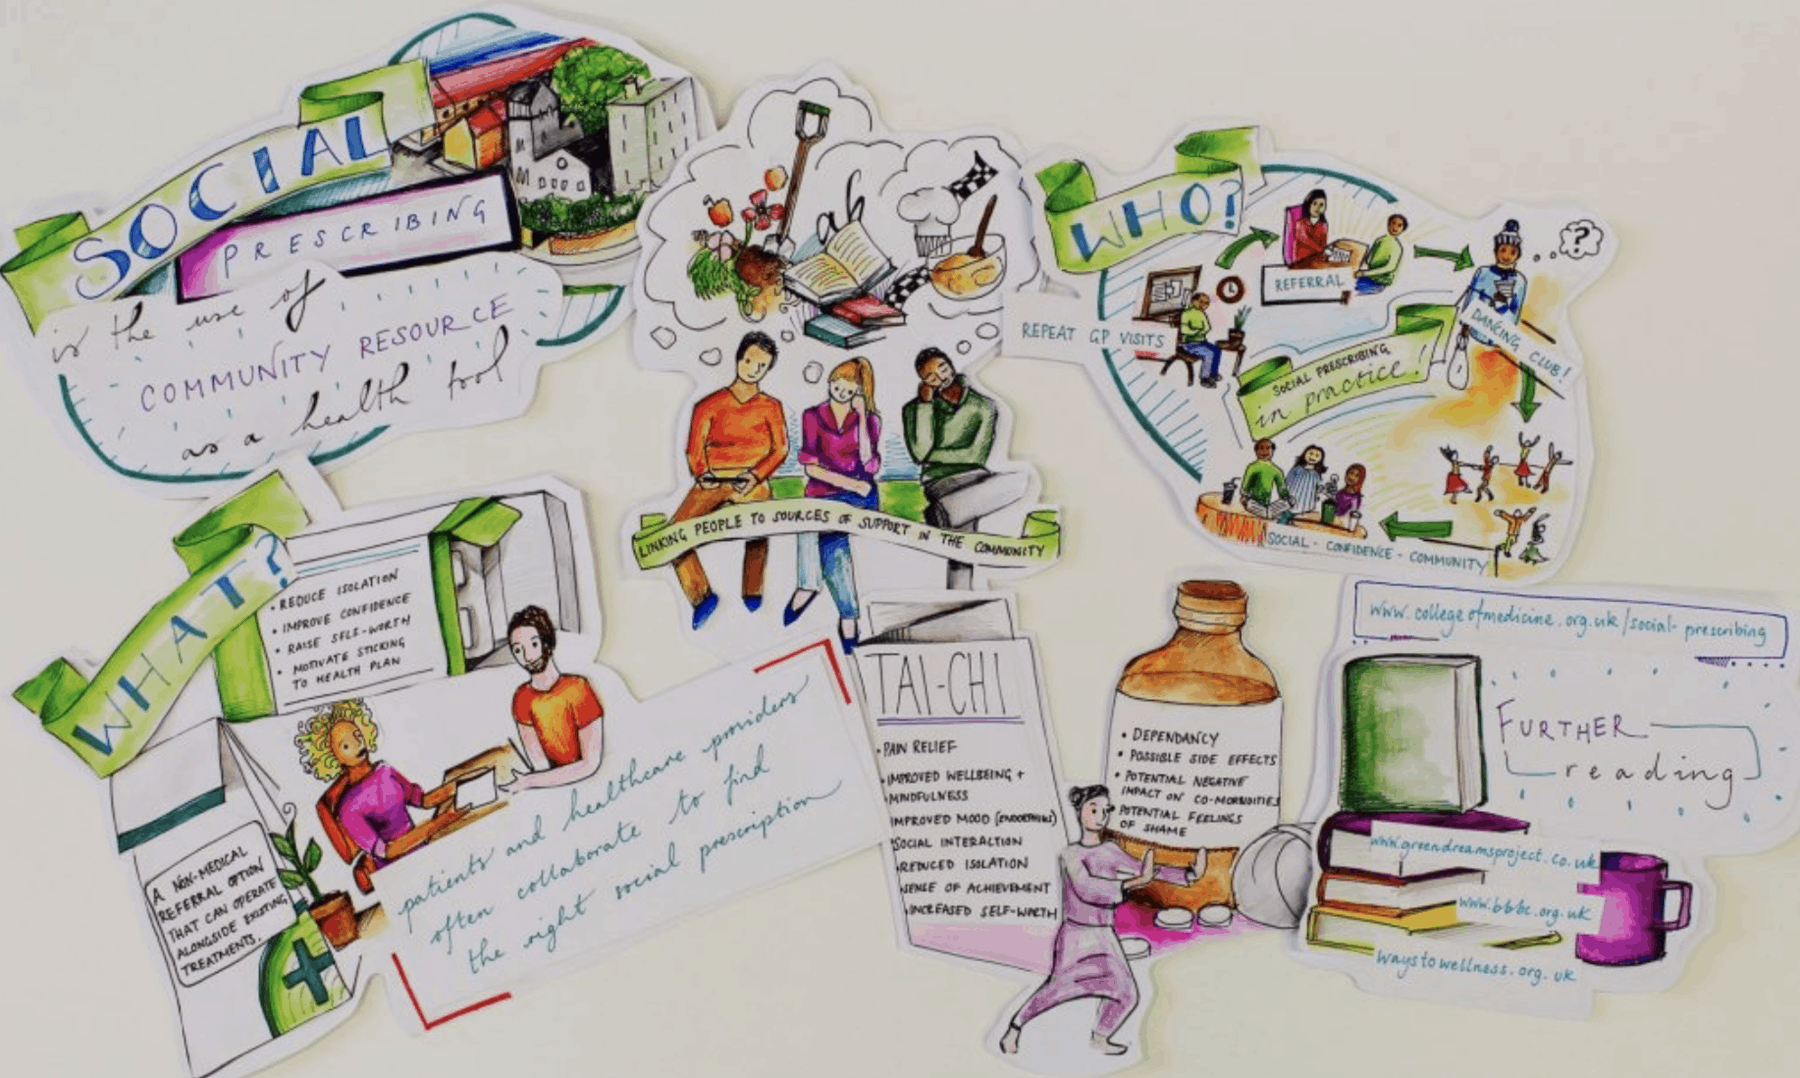 SOCIAL
PRESCRIBING
is the use of
COMMUNITY RESOURCE
as a health tool
ab
LINKING PEOPLE TO SOURCES OF SUPPORT IN THE COMMUNITY
WHO?
REFERRAL
REPEAT GP VISITS
?
DANCING CLUB!
SOCIAL PRESCRIBING
in practice!
SOCIAL - CONFIDENCE - COMMUNITY
WHAT?
• REDUCE ISOLATION
• IMPROVE CONFIDENCE
• RAISE SELF-WORTH
• MOTIVATE STICKING
TO HEALTH PLAN
A NON-MEDICAL
REFERRAL OPTION
THAT CAN OPERATE
ALONGSIDE EXISTING
TREATMENTS.
patients and healthcare providers
often collaborate to find
the right social prescription
TAI-CHI
• PAIN RELIEF
• IMPROVED WELLBEING +
MINDFULNESS
IMPROVED MOOD (ENDORPHINS)
SOCIAL INTERACTION
• REDUCED ISOLATION
SENSE OF ACHIEVEMENT
• INCREASED SELF-WORTH
• DEPENDANCY
• POSSIBLE SIDE EFFECTS
• POTENTIAL NEGATIVE
IMPACT ON CO-MORBIDITIES
POTENTIAL FEELINGS
OF SHAME
www.collegeofmedicine.org.uk/social-prescribing
FURTHER
reading
www.greendreamsproject.co.uk
www.bbbc.org.uk
waystowellness.org.uk